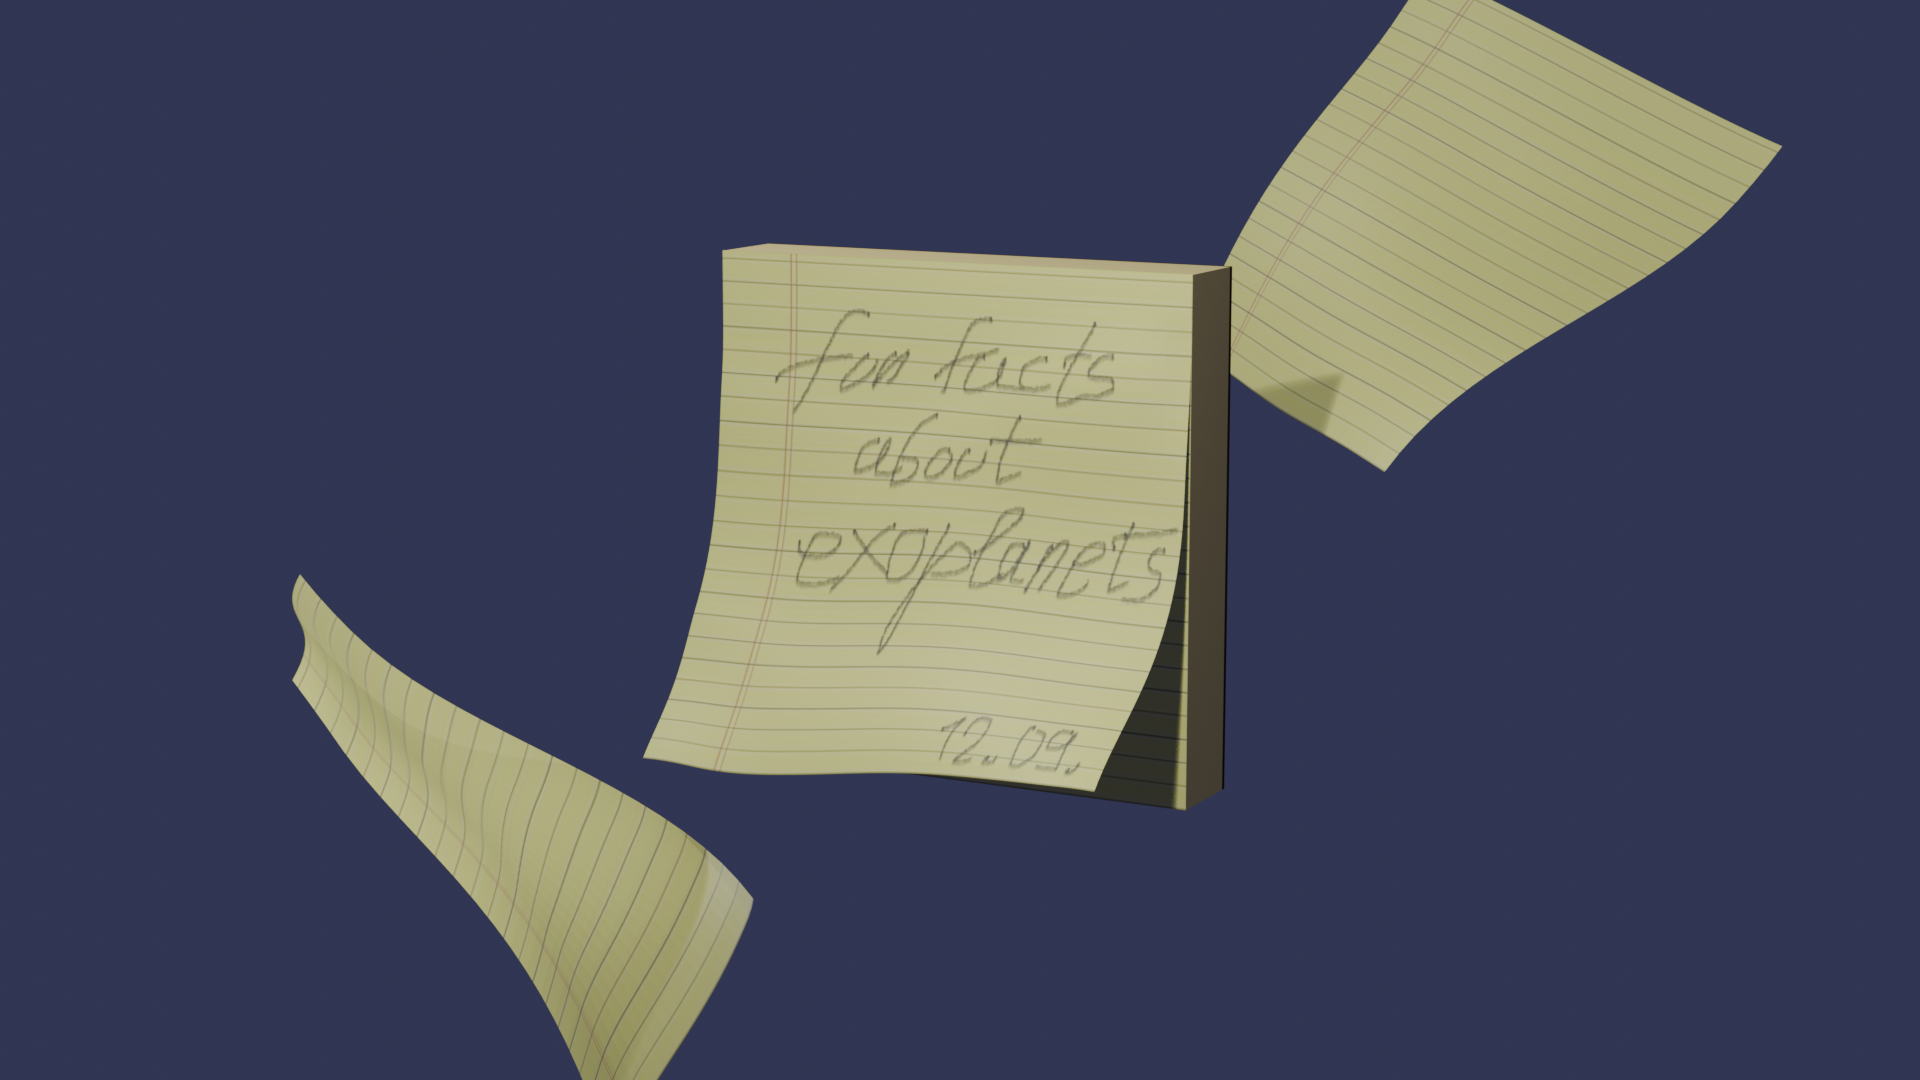 fun facts
about
exoplanets
12.09.